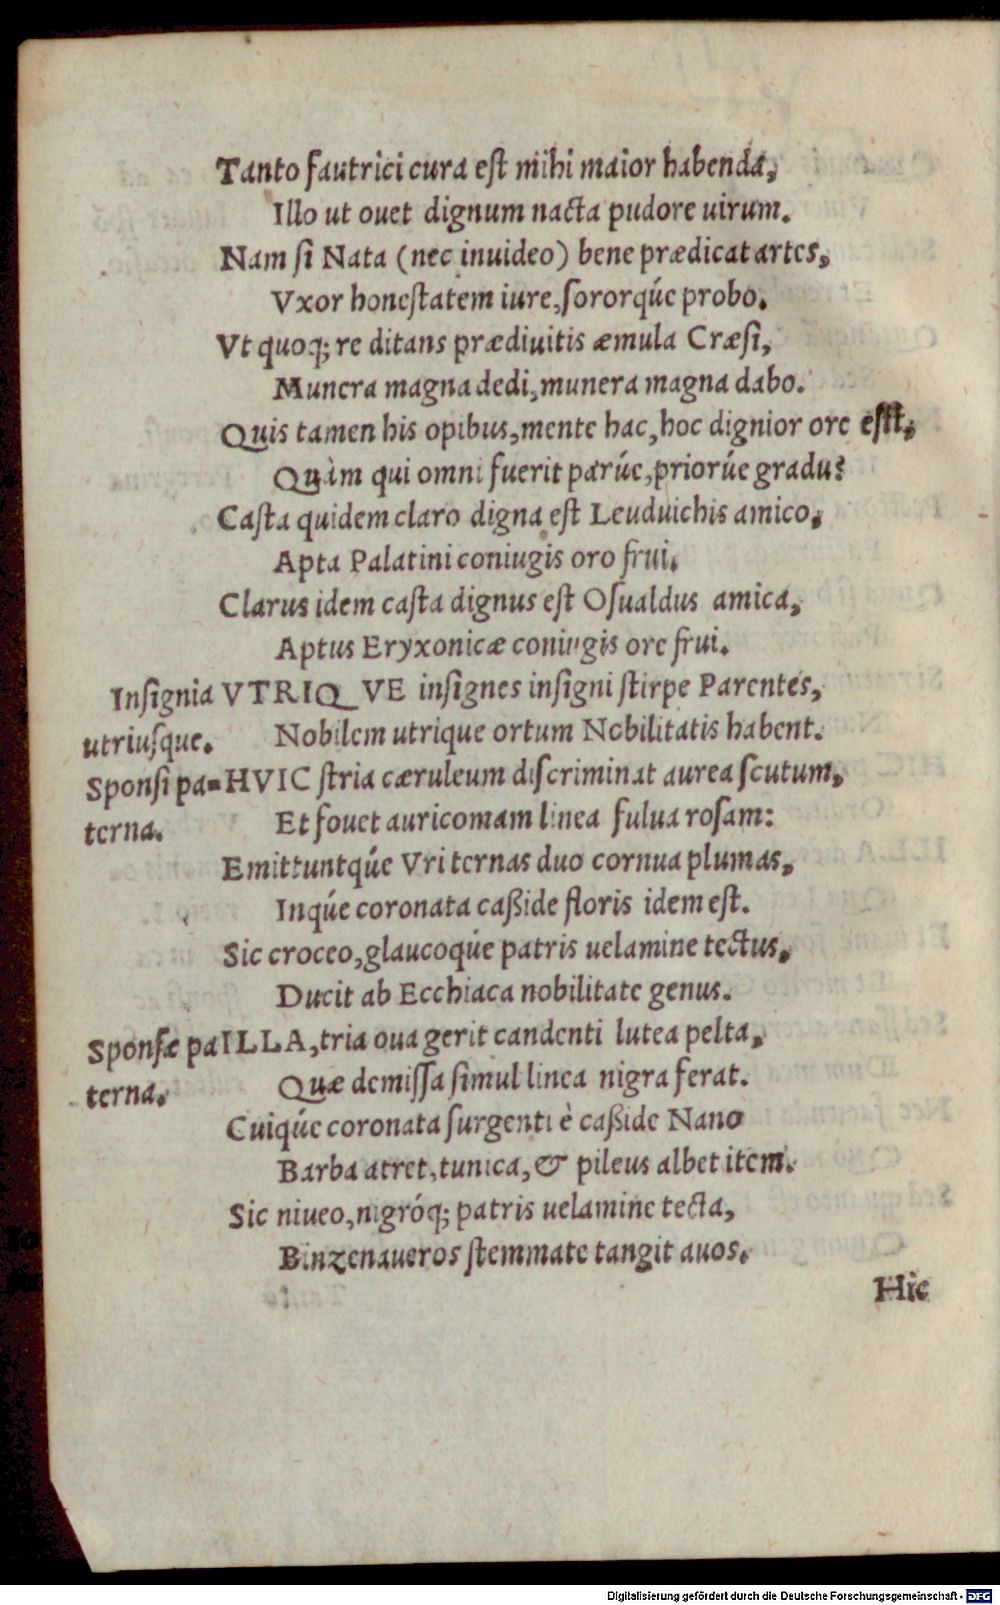 Tanto fautrici cura eſt mihi maior habenda,
Illo ut ouet dignum nacta pudore uirum.
Nam ſi Nata (nec inuideo) bene prædicat artes,
Vxor honeſtatem iure, ſororq́ue probo.
Vt quoq; re ditans prædiuitis æmula Cræſi,
Munera magna dedi, munera magna dabo.
Quis tamen his opibus, mente hac, hoc dignior ore eſtt,
Quàm qui omni fuerit parúe, priorúe gradu?
Caſta quidem claro digna eſt Leuduichis amico,
Apta Palatini coniugis oro frui.
Clarus idem caſta dignus eſt Oſualdus amica,
Aptus Eryxonicæ coniugis ore frui.
Inſignia VTRIQVE inſignes inſigni ſtirpe Parentes,
utriuſque. Nobilem utrique ortum Nobilitatis habent.
Sponſi pa= HVIC ſtria cæruleum diſcriminat aurea ſcutum,
terna. Et fouet auricomam linea fulua roſam:
Emittuntq́ue Vri ternas duo cornua plumas,
Inq́ue coronata caßide floris idem eſt.
Sic croceo, glaucoq́ue patris uelamine tectus,
Ducit ab Ecchiaca nobilitate genus.
Sponſæ pa ILLA, tria oua gerit candenti lutea pelta,
terna. Quæ demiſſa ſimul linea nigra ferat.
Cuiq́ue coronata ſurgenti è caßide Nano
Barba atret, tunica, & pileus albet item.
Sic niueo, nigróq; patris uelamine tecta,
Binzenaueros ſtemmate tangit auos.
Hic
Digitalisierung gefördert durch die Deutsche Forschungsgemeinschaft - DFG